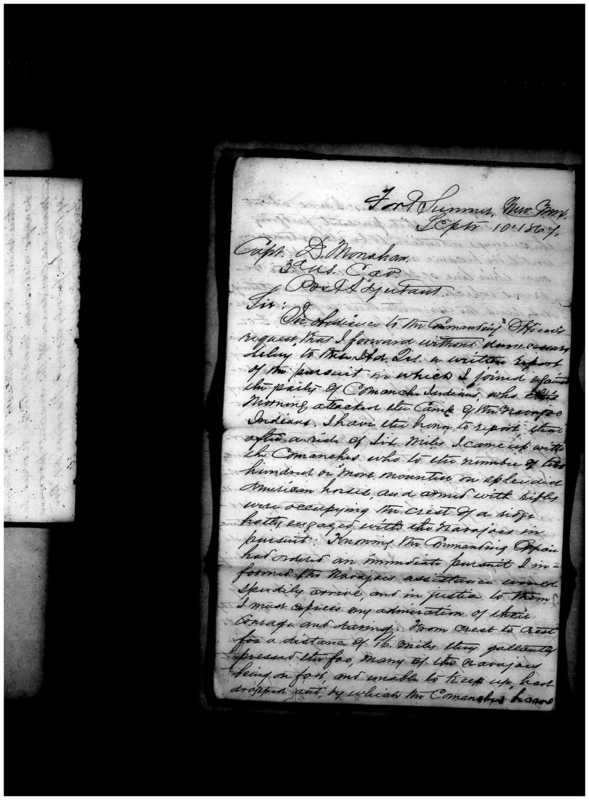 Fort Sumner, New Mex.
Sept 10th 1867.
Capt. D. Monahan.
3d U.S. Cav.
Post Adjutant.
Sir:
In obedience to the Commanding Officer's
request, that I forward without unnecessary
delay to these Hd Qrs. a written report
of the pursuit in which I joined against
the party of Comanche Indians, who this
Morning attacked the Camp of the Navajoe
Indians, I have the honor to report, that
after a ride of Six Miles I came up with
the Comanches who to the number of two
hundred or more mounted on splendid
American horses, and armed with rifles
were occupying the crest of a ridge
hotly engaged with the Navajoes in
pursuit. Knowing the Commanding Officer
had ordered an immediate pursuit I in-
formed the Navajoes assistance would
speedily arrive, and in justice to them
I must express my admiration of their
courage and daring. From crest to crest
for a distance of 16 miles they gallantly
pressed the foe, many of the Navajoes
being on foot, and unable to keep up, had
dropped out, by which the Comanches became